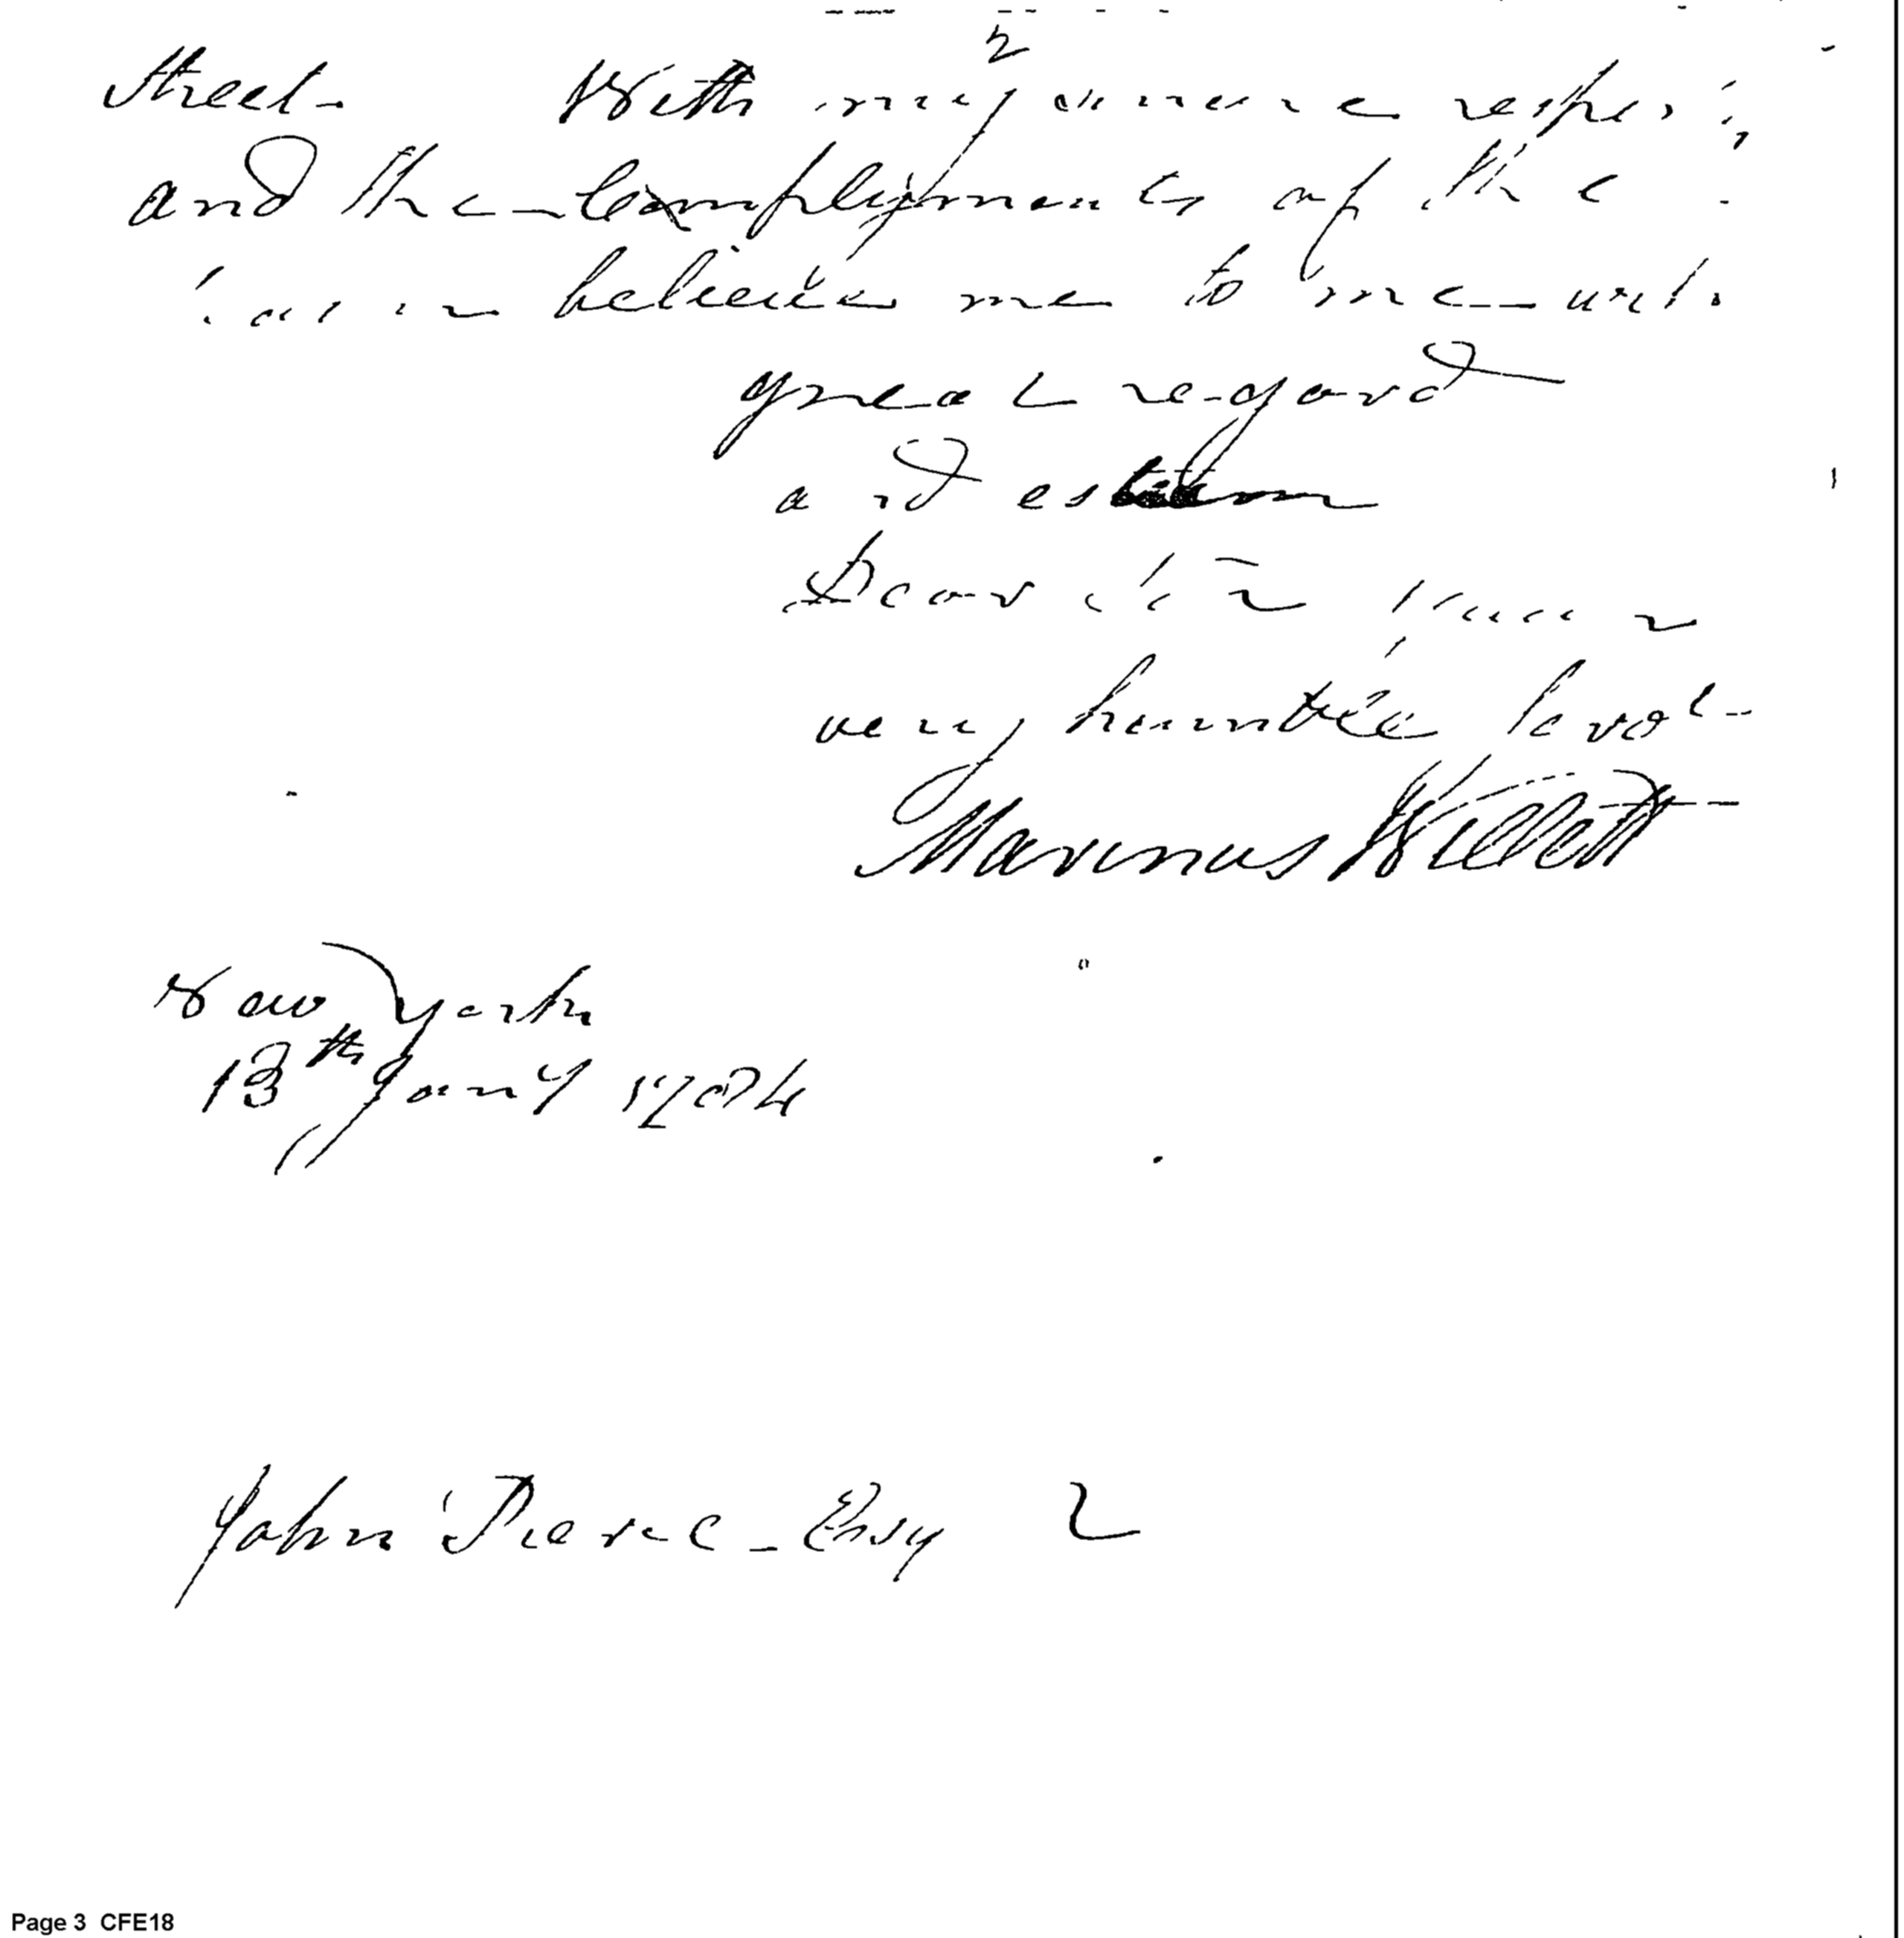 2
Street - With my sincere respects
and the Complyments of the
season believe me to be with
great regard
and esteem
Dear Sir your
very humble servt
Marinus Willett
New York
13th Jany 1784
John Pierce Esqr
Page 3 CFE18